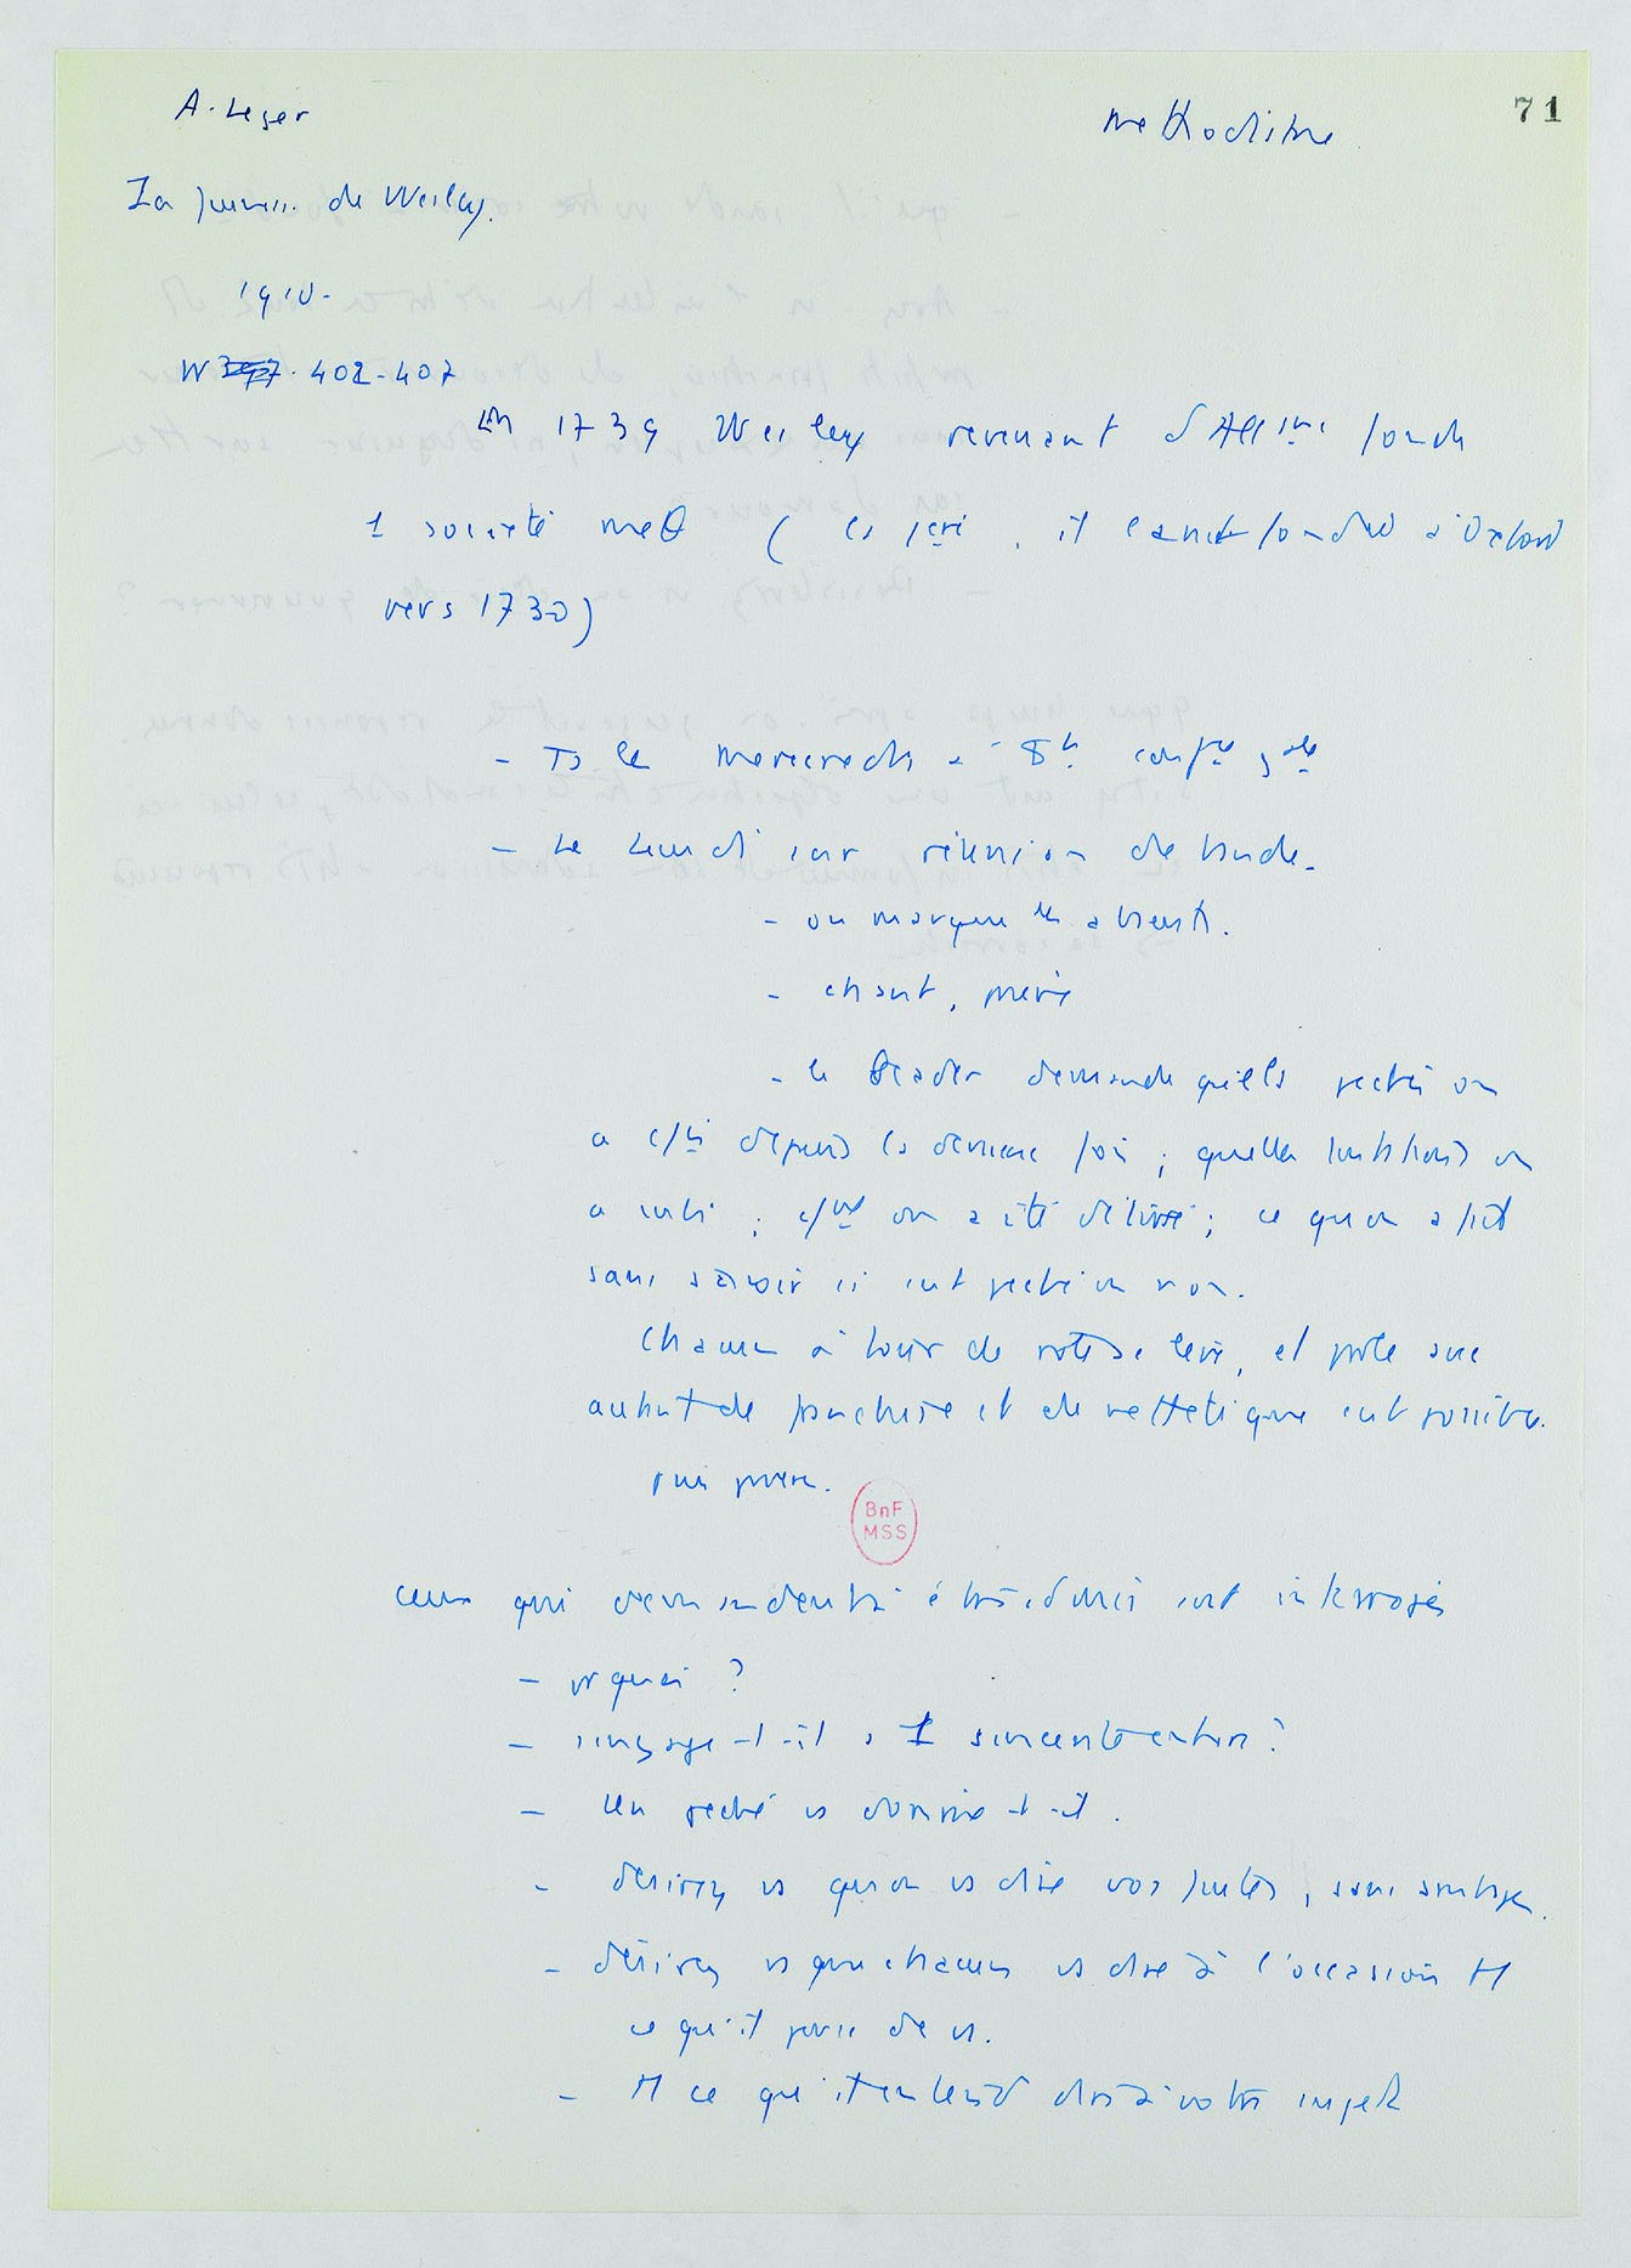 A. Leger
Methodisme
71
La jeuness. de Wesley.
1910.
402-407
En 1739 Wesley revenant d'Allgne fonde
1 société meθ ( , il l'avait fondée à Oxford
vers 1730)
- Ts les mercredis à 8h confce gale
- Le Lundi soir réunion de bande.
- on marque les absents.
- chant, prière
- le leader demande quels péchés on
a depuis la dernière fois ; quelles tentations on
a subi ; on a été délivré ; ce qu'on a fait
sans savoir si c'est péché ou non.
Chacun à tour de rôle se lève, et parle avec
autant de franchise et de netteté que c'est possible.
puis prière.
BnF
MSS
Ceux qui demandent à être admis sont interrogés
- pr quoi ?
- s'engage-t-il à 1 sincérité entière ?
- Un péché vs domine-t-il.
- Désirez vs qu'on vs dise vos fautes, sans ambages.
- désirez vs que chacun vs dise à l'occasion tt
ce qu'il pense de vs.
- tt ce qu'il entend dire à votre sujet